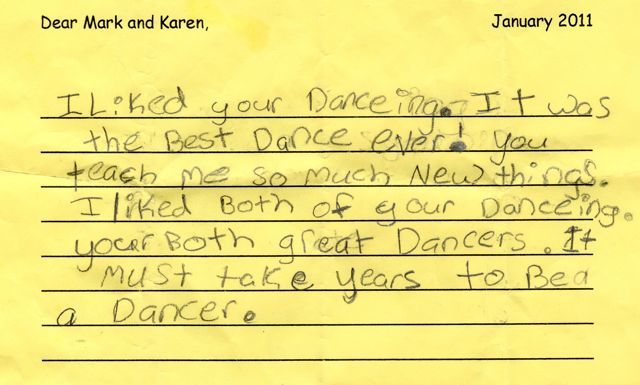 Dear Mark and Karen, January 2011
I Liked your Danceing. It was
the Best Dance ever! you
teach me so much New things.
I liked Both of your Danceing.
your Both great Dancers. It
Must take years to Bea
a Dancer.